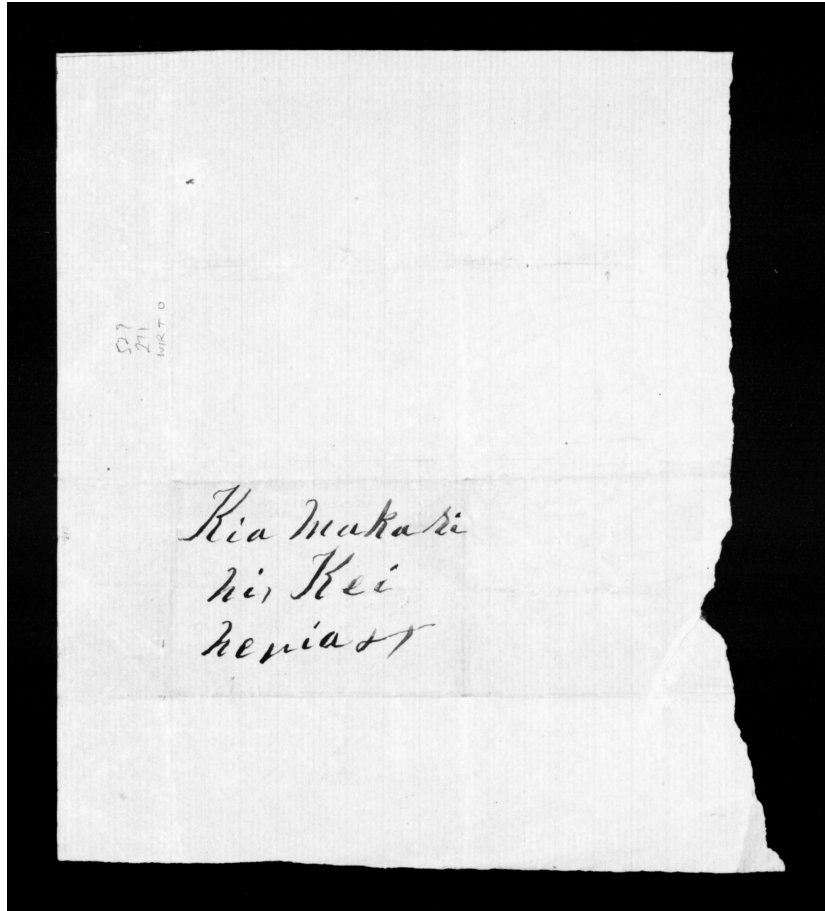 529
271
WIRTO
Kia Makari
ni, Kei
nepia